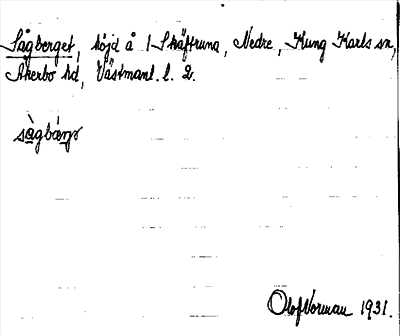 Sågberget, höjd å 1 Skäftruna, Nedre, Kung Karls sn,
Åkerbo hd, Västmanl. l. 2.
sàgbæṛjə
Olof Norman 1931.